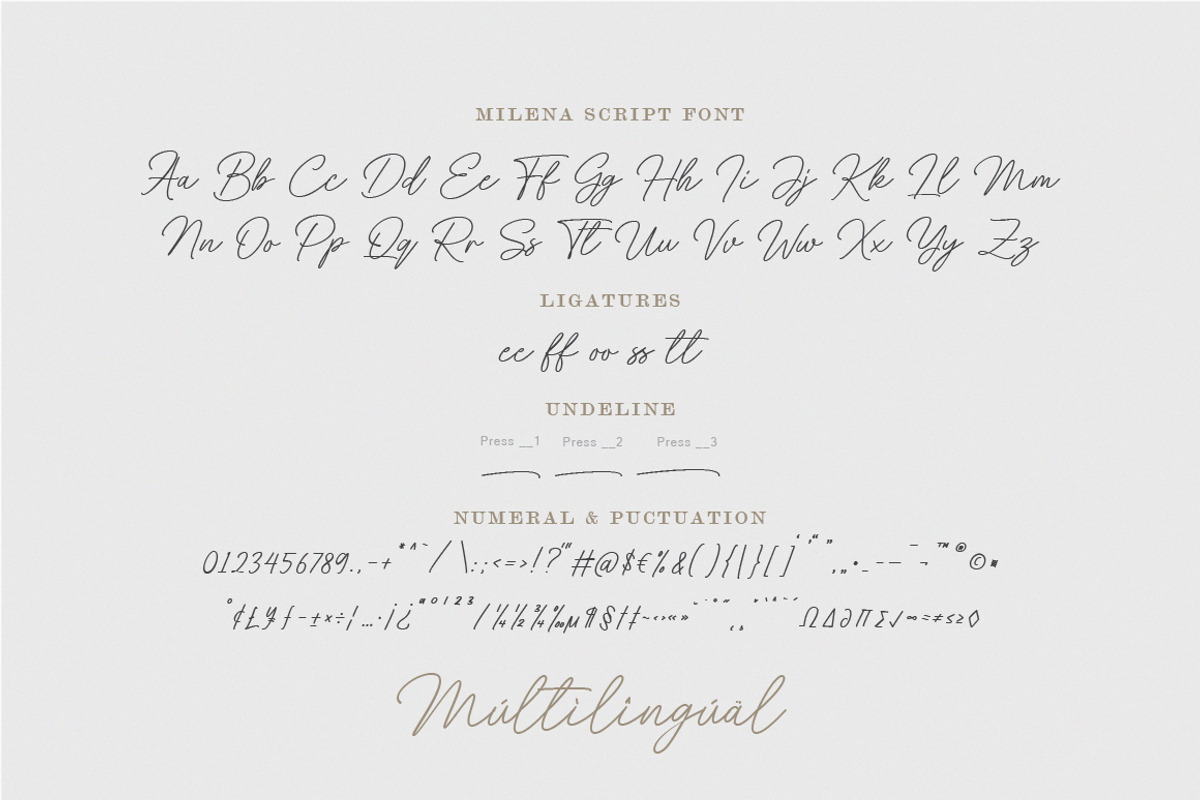 MILENA SCRIPT FONT
Aa Bb Cc Dd Ee Ff Gg Hh Ii Jj Kk Ll Mm
Nn Oo Pp Qq Rr Ss Tt Uu Vv Ww Xx Yy Zz
LIGATURES
ee ff oo ss tt
UNDELINE
Press __1 Press __2 Press __3
NUMERAL & PUCTUATION
0123456789.,-+*^~/\:;<=>!?"'#@$€%&(){|}[]‘’“”‚„•_–—¯¬™®©
°¢£¥ƒ-±×÷¦…·¡¿ªº¹²³/¼½¾‰µ¶§†‡~‹›«»ΩΔ∂∏∑√∞≈≠≤≥◊
Múltìlîngúäl